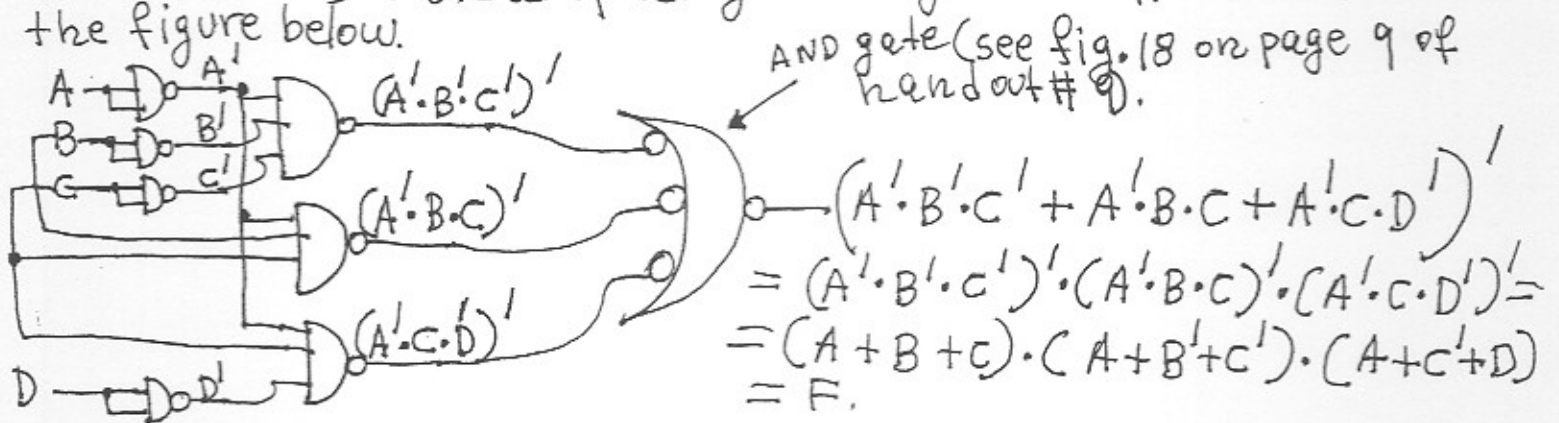 the figure below.
AND gate (see fig. 18 on page 9 of
handout # 9).
A
A'
(A'·B'·C')'
B
B'
C
C'
(A'·B·C)'
(A'·B'·C' + A'·B·C + A'·C·D')'
= (A'·B'·C')'·(A'·B·C)'·(A'·C·D')' =
= (A + B + C)·(A + B' + C')·(A + C' + D)
= F.
(A'·C·D')'
D
D'